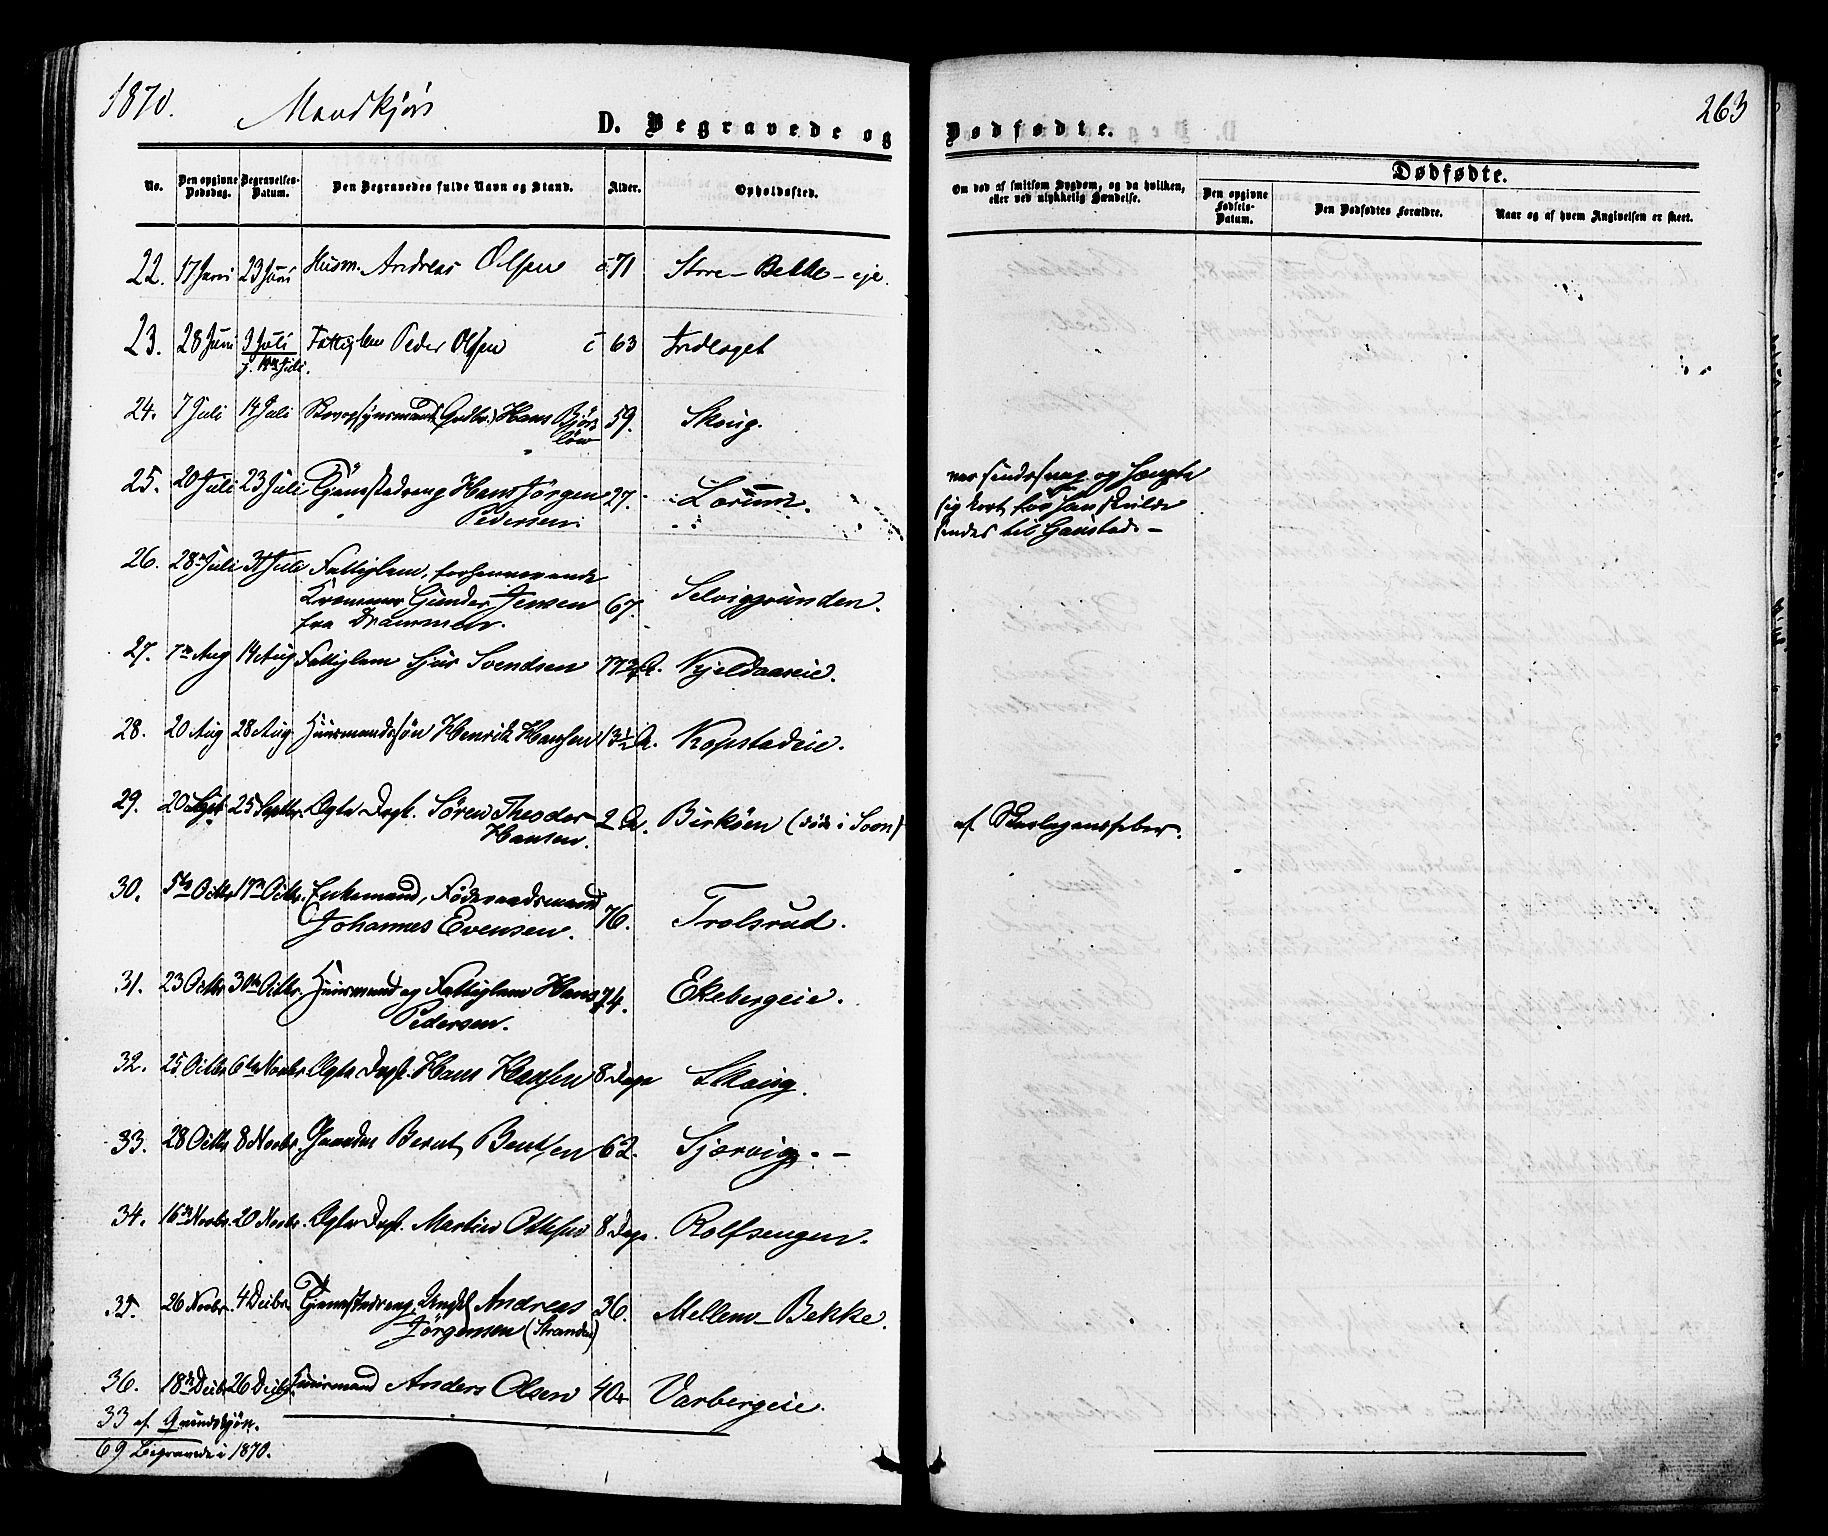 1870. Mandkjøn
263
D. Begravede og Dødfødte.
No. Den opgivne Dødsdag. Begravelses-Datum. Den Begravedes fulde Navn og Stand. Alder. Opholdssted. Om død af smitsom Sygdom, og da hvilken, eller ved ulykkelig Hændelse.
Dødfødte.
Den opgivne Fødsels-Datum. Den Dødfødtes Forældre. Naar og af hvem Angivelsen er skeet.
22. 17 Juni 23 Juni Husm. Andreas Olsen 71 Store-Bekke-eje.
23. 28 Juni 3 Juli Fattiglem Peder Olsen 63 Indlaget
j. 10n Juli.
24. 7 Juli 14 Juli Hans Bjørs 59. Skoug.
løw
25. 20 Juli 23 Juli Tjenestedreng Hans Jørgen 27. Lorum. var sindssvag og hængte
Pedersen sig kort før han skulde
sendes til Gaustad. –
26. 28 Juli 31 Juli Fattiglem, forhenværende
Kræmmer Gunder Jensen 67. Selviggrunden.
fra Drammen.
27. 7n Aug 14 Aug Fattiglem Sjur Svendsen 77 3/4 A. Kjeldaaseie.
28. 20 Aug 28 Aug Huusmandssøn Henrik Hansen 13½ A. Kopstadeie.
29. 20 Sept 25 Septbr. Ægte Dgt. Søren Theodor 2 A. Birköen (död i Soon) af Skarlagensfeber.
Hansen.
30. 5te Octbr 17n Octbr. Enkemand, Föderaadsmand
Johannes Evensen. 76. Trolsrud.
31. 23 Octbr 30te Octbr. Huusmand og Fattiglem Hans 74. Ekebergeie.
Pedersen.
32. 25 Octbr 6te Novbr Ægte Dgt. Hans Hansen 8 Dage Skoug.
33. 28 Octbr 8 Novbr. Bernt Bentsen 62. Sjørvig. –
34. 16n Novbr. 20 Novbr. Ægte Dgt. Martin Ottesen 8 Dage. Rolfsengen.
35. 26 Novbr. 4 Decbr. Tjenestedreng, Ungk. Andreas 36. Mellem-Bekke.
Jörgensen (Stranden)
36. 18n Decbr 26 Decbr. Huusmand Anders Olsen 40 Varbergeie.
33 af Qvindekjön.
69 Begravede i 1870.